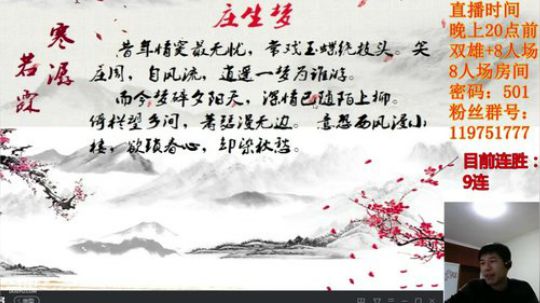 庄生梦
寒潺
若霖
昔年情窦最无忧，常戏玉蝶绕枝头。笑
庄周，自风流，逍遥一梦为谁游。
而今梦碎夕阳天，深情已随陌上柳。
倚栏望乡间，著路漫无边。意愁西风漫小
楼，欲琐春心，却染秋愁。
直播时间
晚上20点前
双雄+8人场
8人场房间
密码：501
粉丝群号：
119751777
目前连胜：
9连